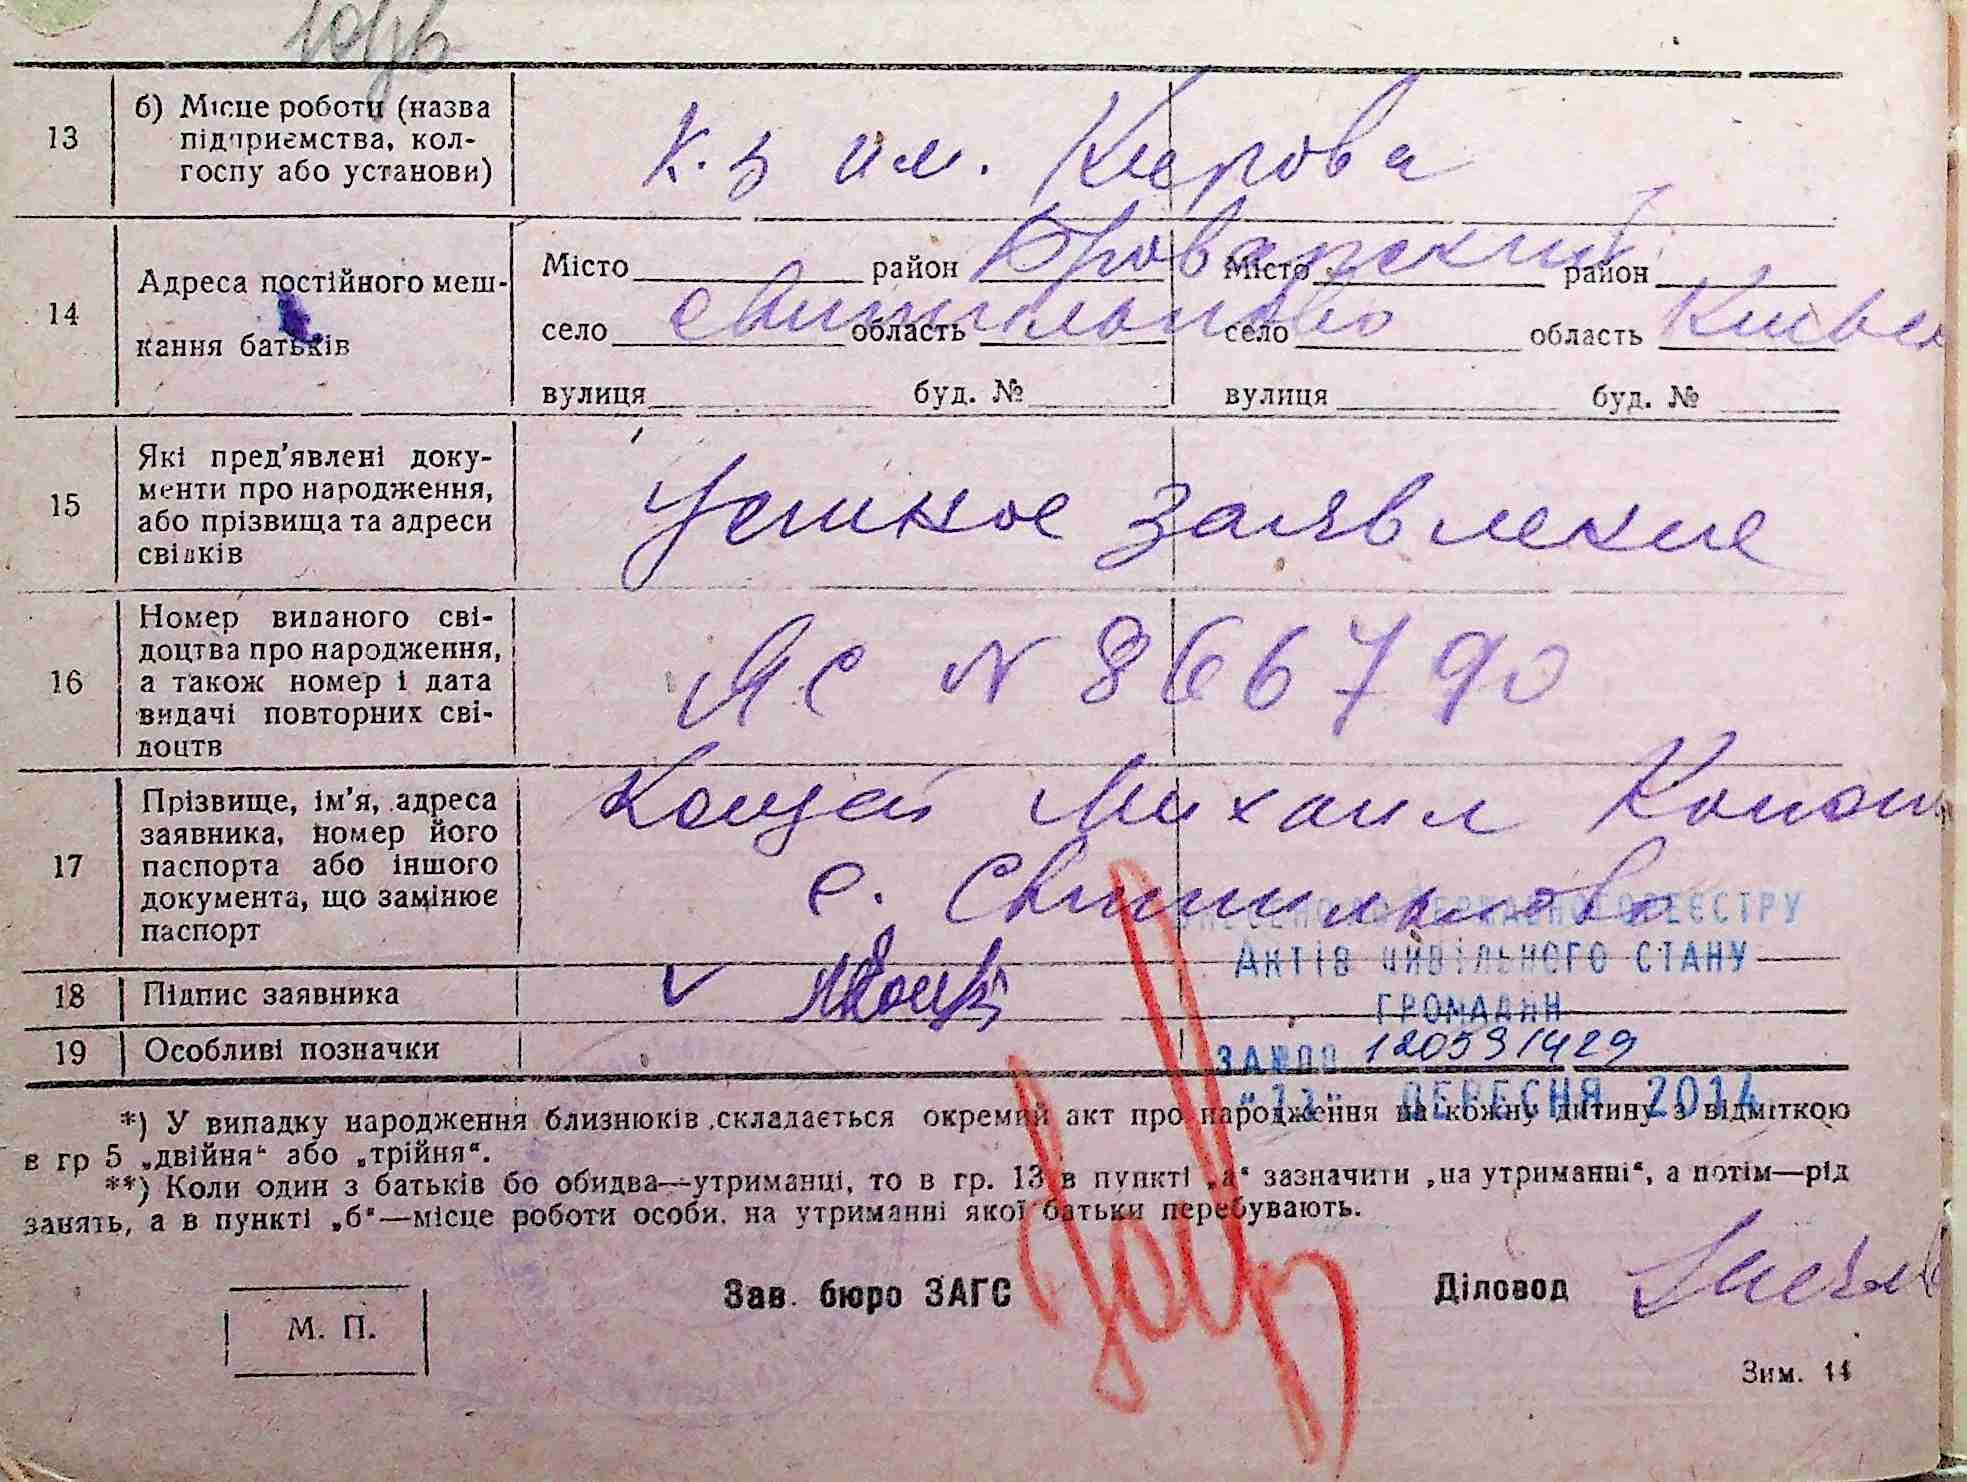 13 б) Місце роботи (назва
підприємства, кол-
госпу або установи)
к.з им. Кирова
14 Адреса постійного меш-
кання батьків
Місто район Броварский Місто район
село Свитильново область село область Киевск
вулиця буд. № вулиця буд. №
15 Які пред'явлені доку-
менти про народження,
або прізвища та адреси
свідків
Устное заявление
16 Номер виданого сві-
доцтва про народження,
а також номер і дата
видачі повторних сві-
доцтв
ЯС N 866790
17 Прізвище, ім'я, адреса
заявника, номер його
паспорта або іншого
документа, що замінює
паспорт
Коцей Михаил
с. Свитильново
ДЕРЖАВНОГО РЕЄСТРУ
АКТІВ ЦИВІЛЬНОГО СТАНУ
ГРОМАДЯН
18 Підпис заявника
19 Особливі позначки
ЗА №00 120591429
"11" ВЕРЕСНЯ 2014
*) У випадку народження близнюків складається окремий акт про народження на кожну дитину з відміткою
в гр 5 „двійня“ або „трійня“.
**) Коли один з батьків бо обидва—утриманці, то в гр. 13 в пункті „а“ зазначити „на утриманні“, а потім—рід
занять, а в пункті „б“—місце роботи особи, на утриманні якої батьки перебувають.
Зав. бюро ЗАГС Діловод
М. П.
Зим. 14